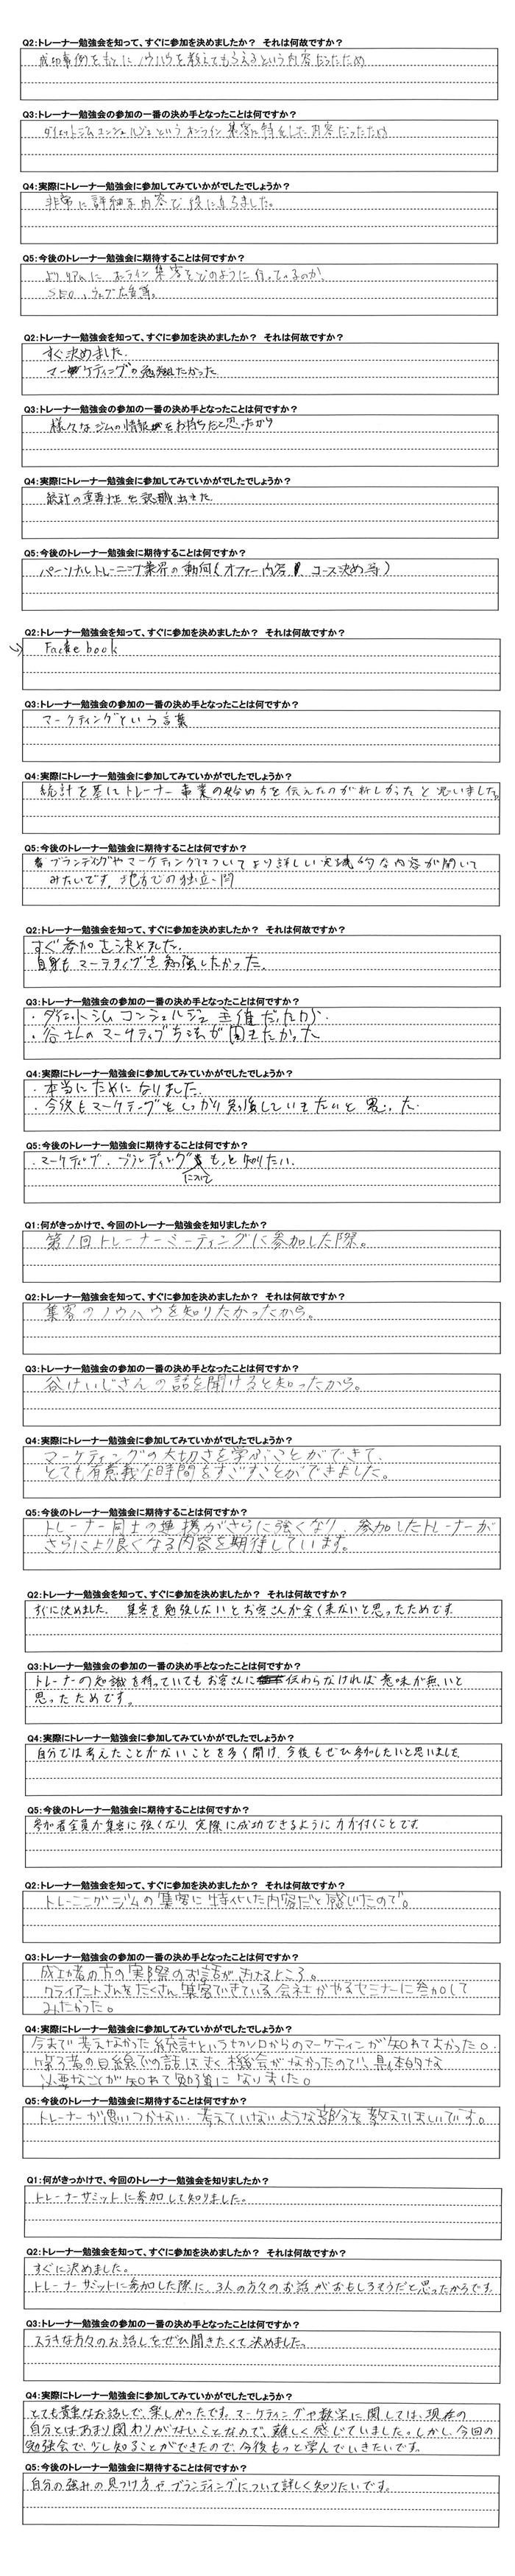 Q2:トレーナー勉強会を知って、すぐに参加を決めましたか? それは何故ですか?
成功事例をもとにノウハウを教えてもらえるという内容だったため
Q3:トレーナー勉強会の参加の一番の決め手となったことは何ですか?
ダイエットジムコンシェルジュというオンライン集客に特化した内容だったため
Q4:実際にトレーナー勉強会に参加してみていかがでしたでしょうか?
非常に詳細な内容で役に立ちました。
Q5:今後のトレーナー勉強会に期待することは何ですか?
よりリアルにオンライン集客をどのように行っているのか、
SEO、ウェブ広告等。
Q2:トレーナー勉強会を知って、すぐに参加を決めましたか? それは何故ですか?
すぐ決めました。
マーケティングの勉強したかった
Q3:トレーナー勉強会の参加の一番の決め手となったことは何ですか?
様々なジムの情報をお持ちだと思ったから
Q4:実際にトレーナー勉強会に参加してみていかがでしたでしょうか?
統計の重要性を認識出きた。
Q5:今後のトレーナー勉強会に期待することは何ですか?
パーソナルトレーニング業界の動向(オファー内容、コース決め等)
Q2:トレーナー勉強会を知って、すぐに参加を決めましたか? それは何故ですか?
Facebook
Q3:トレーナー勉強会の参加の一番の決め手となったことは何ですか?
マーケティングという言葉
Q4:実際にトレーナー勉強会に参加してみていかがでしたでしょうか?
統計を基にトレーナー事業の始め方を伝えたのが新しかったと思いました。
Q5:今後のトレーナー勉強会に期待することは何ですか?
ブランディングやマーケティングについてより詳しい実践的な内容が聞いて
みたいです。地方での独立・開
Q2:トレーナー勉強会を知って、すぐに参加を決めましたか? それは何故ですか?
すぐ参加を決めました。
自身もマーケティングを勉強したかった。
Q3:トレーナー勉強会の参加の一番の決め手となったことは何ですか?
・ダイエットジムコンシェルジュ主催だたから。
・谷さんのマーケティング方法が聞きたかった
Q4:実際にトレーナー勉強会に参加してみていかがでしたでしょうか?
・本当にためになりました。
・今後もマーケティングをしっかり勉強していきたいと思った。
Q5:今後のトレーナー勉強会に期待することは何ですか?
・マーケティング、ブランディングもっと知りたい。
について
Q1:何がきっかけで、今回のトレーナー勉強会を知りましたか?
第1回トレーナーミーティングに参加した際。
Q2:トレーナー勉強会を知って、すぐに参加を決めましたか? それは何故ですか?
集客のノウハウを知りたかったから。
Q3:トレーナー勉強会の参加の一番の決め手となったことは何ですか?
谷けいじさんの話を聞けると知ったから。
Q4:実際にトレーナー勉強会に参加してみていかがでしたでしょうか?
マーケティングの大切さを学ぶことができて、
とても有意義な時間をすごすことができました。
Q5:今後のトレーナー勉強会に期待することは何ですか?
トレーナー同士の連携がさらに強くなり、参加したトレーナーが
さらにより良くなる内容を期待しています。
Q2:トレーナー勉強会を知って、すぐに参加を決めましたか? それは何故ですか?
すぐに決めました。 集客を勉強しないとお客さんが全く来ないと思ったためです。
Q3:トレーナー勉強会の参加の一番の決め手となったことは何ですか?
トレーナーの知識を持っていてもお客さんに伝わらなければ意味が無いと
思ったためです。
Q4:実際にトレーナー勉強会に参加してみていかがでしたでしょうか?
自分では考えたことがないことを多く聞け、今後もぜひ参加したいと思いました。
Q5:今後のトレーナー勉強会に期待することは何ですか?
参加者全員が集客に強くなり、実際に成功できるように力が付くことです。
Q2:トレーナー勉強会を知って、すぐに参加を決めましたか? それは何故ですか?
トレーニングジムの集客に特化した内容だと感じたので。
Q3:トレーナー勉強会の参加の一番の決め手となったことは何ですか?
成功者の方の実際のお話がきけるところ。
クライアントさんをたくさん集客できている会社がやるセミナーに参加して
みたかった。
Q4:実際にトレーナー勉強会に参加してみていかがでしたでしょうか?
今まで考えなかった統計という切り口からのマーケティンが知れてよかった。
第3者の目線での話はきく機会がなかったので、具体的な
必要なことが知れて勉強になりました。
Q5:今後のトレーナー勉強会に期待することは何ですか?
トレーナーが思いつかない、考えていないような部分を教えてほしいです。
Q1:何がきっかけで、今回のトレーナー勉強会を知りましたか?
トレーナーサミットに参加して知りました。
Q2:トレーナー勉強会を知って、すぐに参加を決めましたか? それは何故ですか?
すぐに決めました。
トレーナーサミットに参加した際に、3人の方々のお話がおもしろそうだと思ったからです。
Q3:トレーナー勉強会の参加の一番の決め手となったことは何ですか?
ステキな方々のお話しをぜひ聞きたくて決めました。
Q4:実際にトレーナー勉強会に参加してみていかがでしたでしょうか?
とても貴重なお話しで、楽しかったです。マーケティングや数字に関しては、現在の
自分とはあまり関わりがないことなので、難しく感じていました。しかし、今回の
勉強会で、少し知ることができたので、今後もっと学んでいきたいです。
Q5:今後のトレーナー勉強会に期待することは何ですか?
自分の強みの見つけ方やブランディングについて詳しく知りたいです。